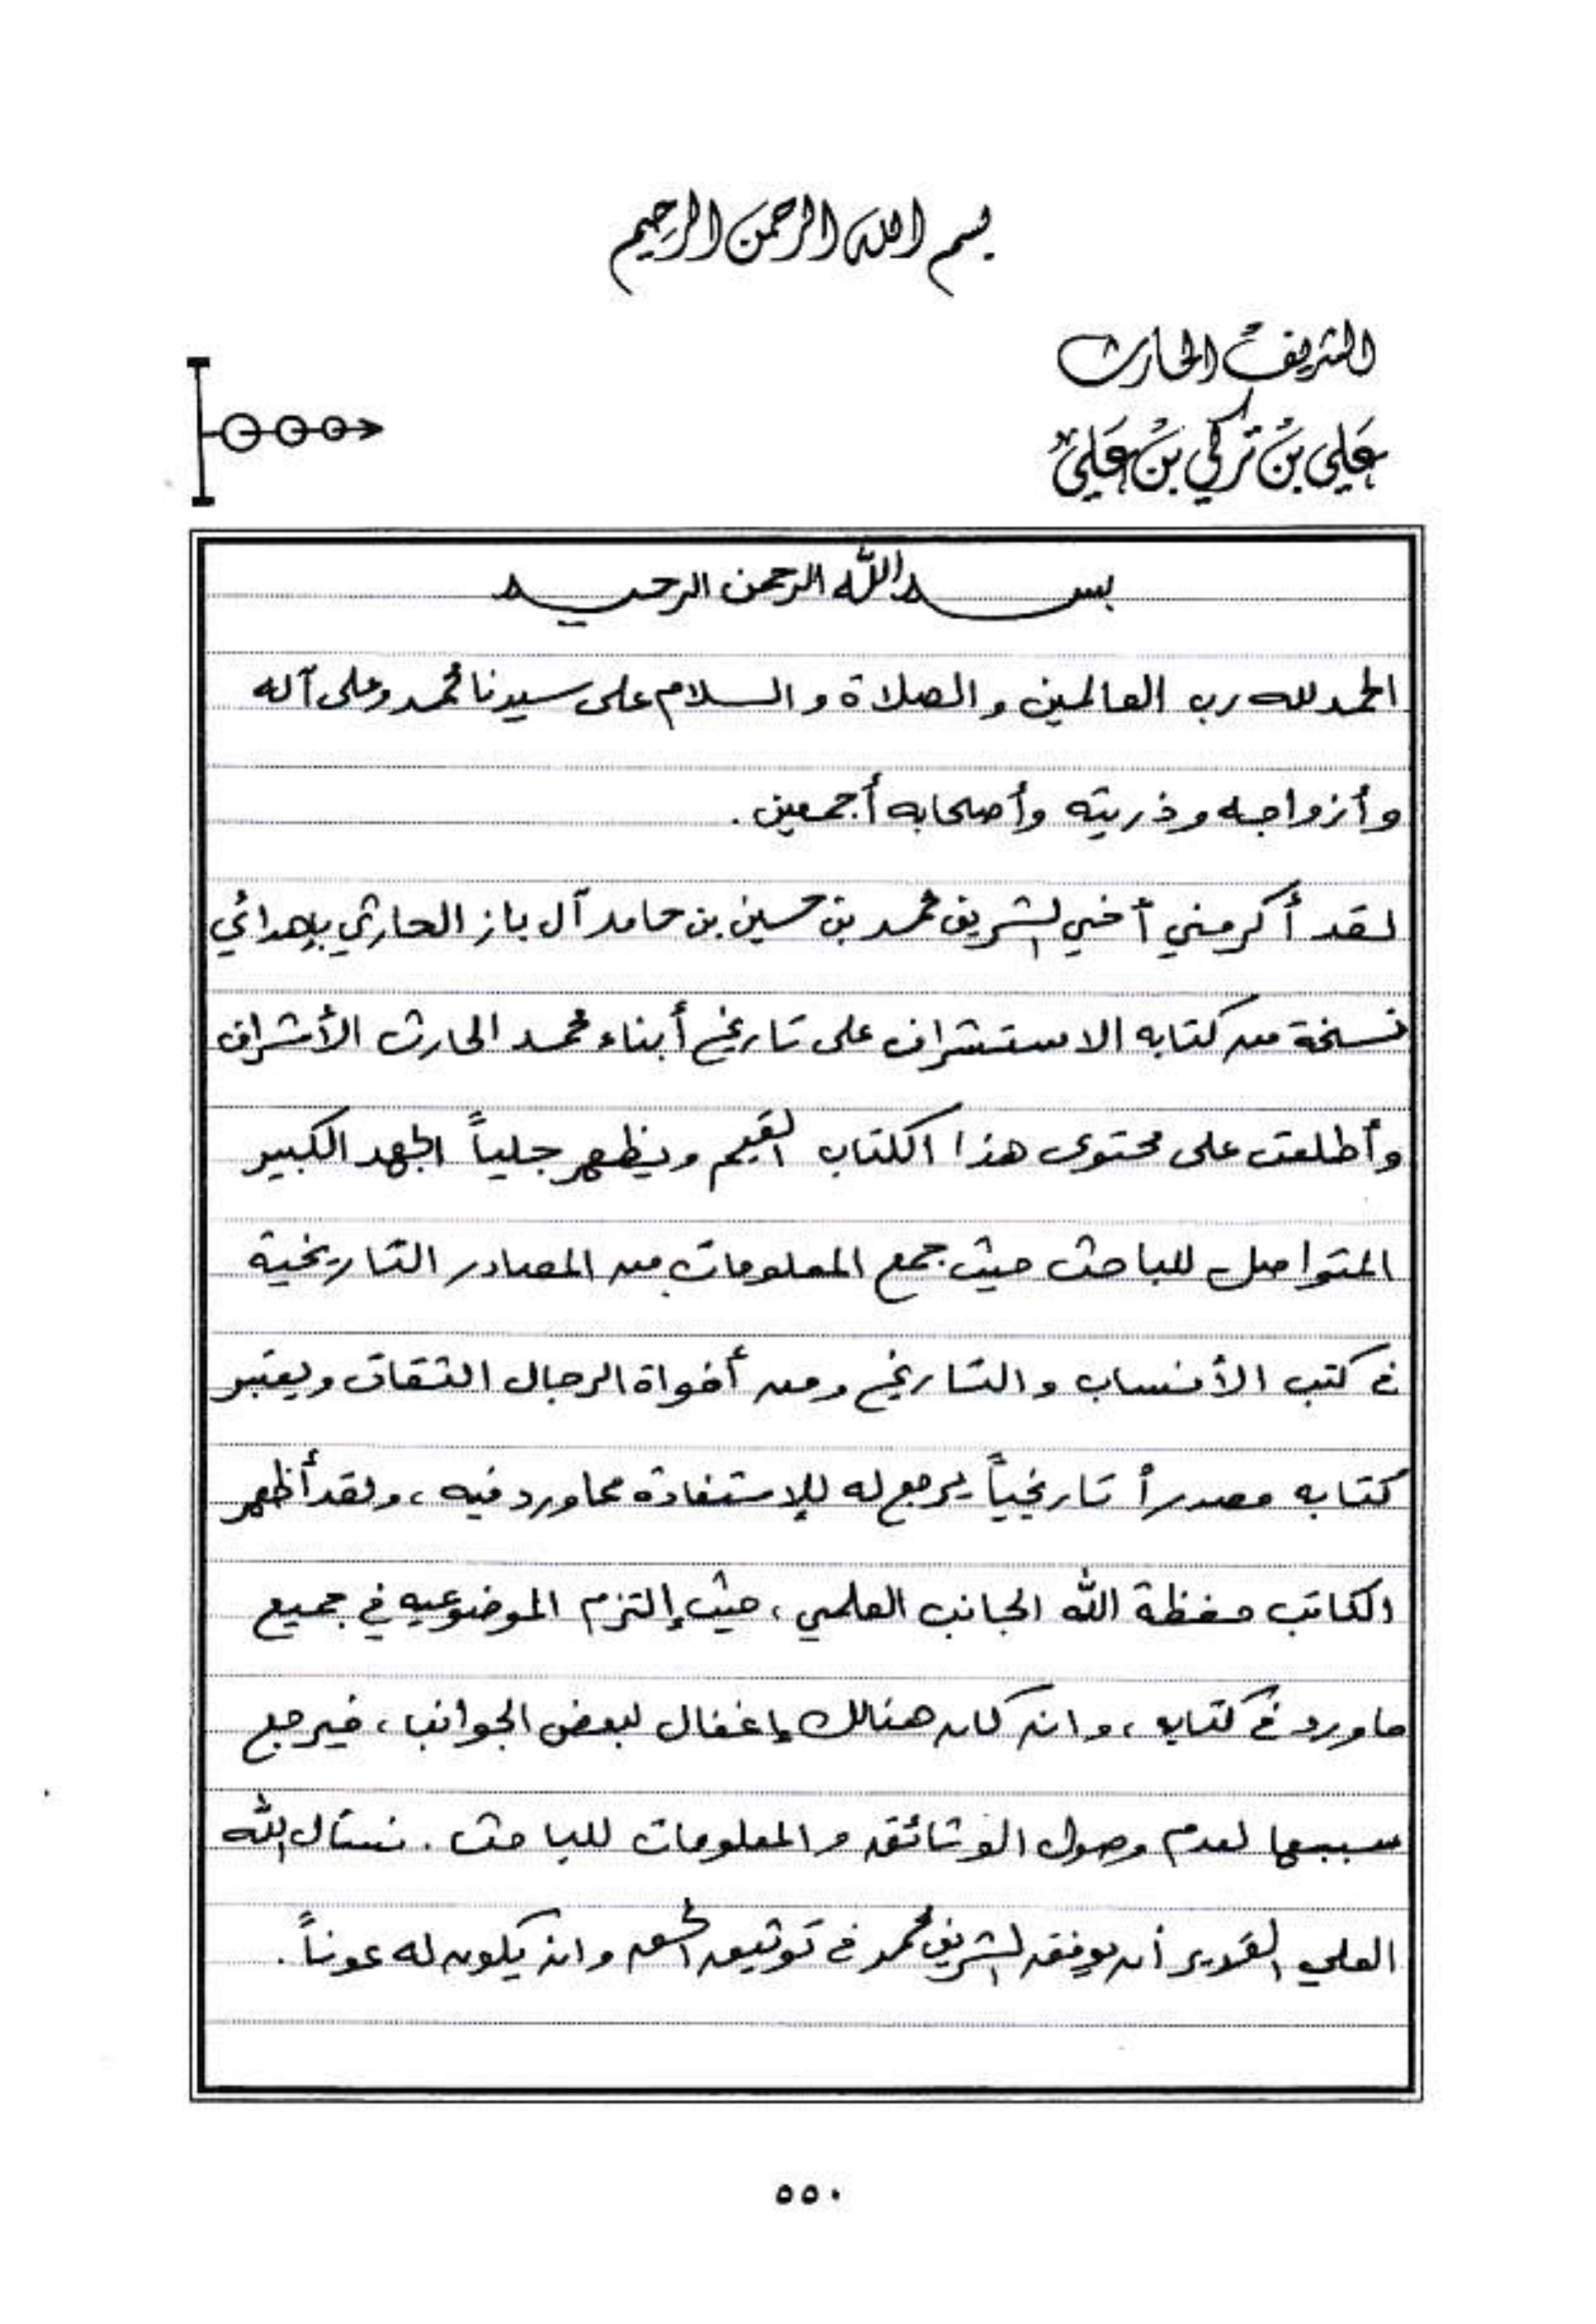 بسم الله الرحمن الرحيم
الشريف الحارث
علي بن تركي بن علي
بسم الله الرحمن الرحيم
الحمد لله رب العالمين والصلاة والسلام على سيدنا محمد وعلى آله
وأزواجه وذريته وأصحابه أجمعين.
لقد أكرمني أخي الشريف محمد بن حسين بن حامد آل باز الحارثي بإهدائي
نسخة من كتابه الاستشراف على تاريخ أبناء محمد الحارث الأشراف
وأطلعت على محتوى هذا الكتاب القيم ويظهر جلياً الجهد الكبير
المتواصل للباحث حيث جمع المعلومات من المصادر التاريخية
في كتب الأنساب والتاريخ ومن أفواة الرجال الثقات ويعتبر
كتابه مصدراً تاريخياً يرجع له للإستفادة مما ورد فيه ، ولقد أظهر
الكاتب حفظة الله الجانب العلمي ، حيث إلتزم الموضوعيه في جميع
ما ورد في كتابه ، وان كان هنالك إغفال لبعض الجوانب ، فيرجع
سببها لعدم وصول الوثائق والمعلومات للباحث . نسأل الله
العلي القدير أن يوفق الشريف محمد في توثيق الحق وان يكون له عوناً .
٥٥٠